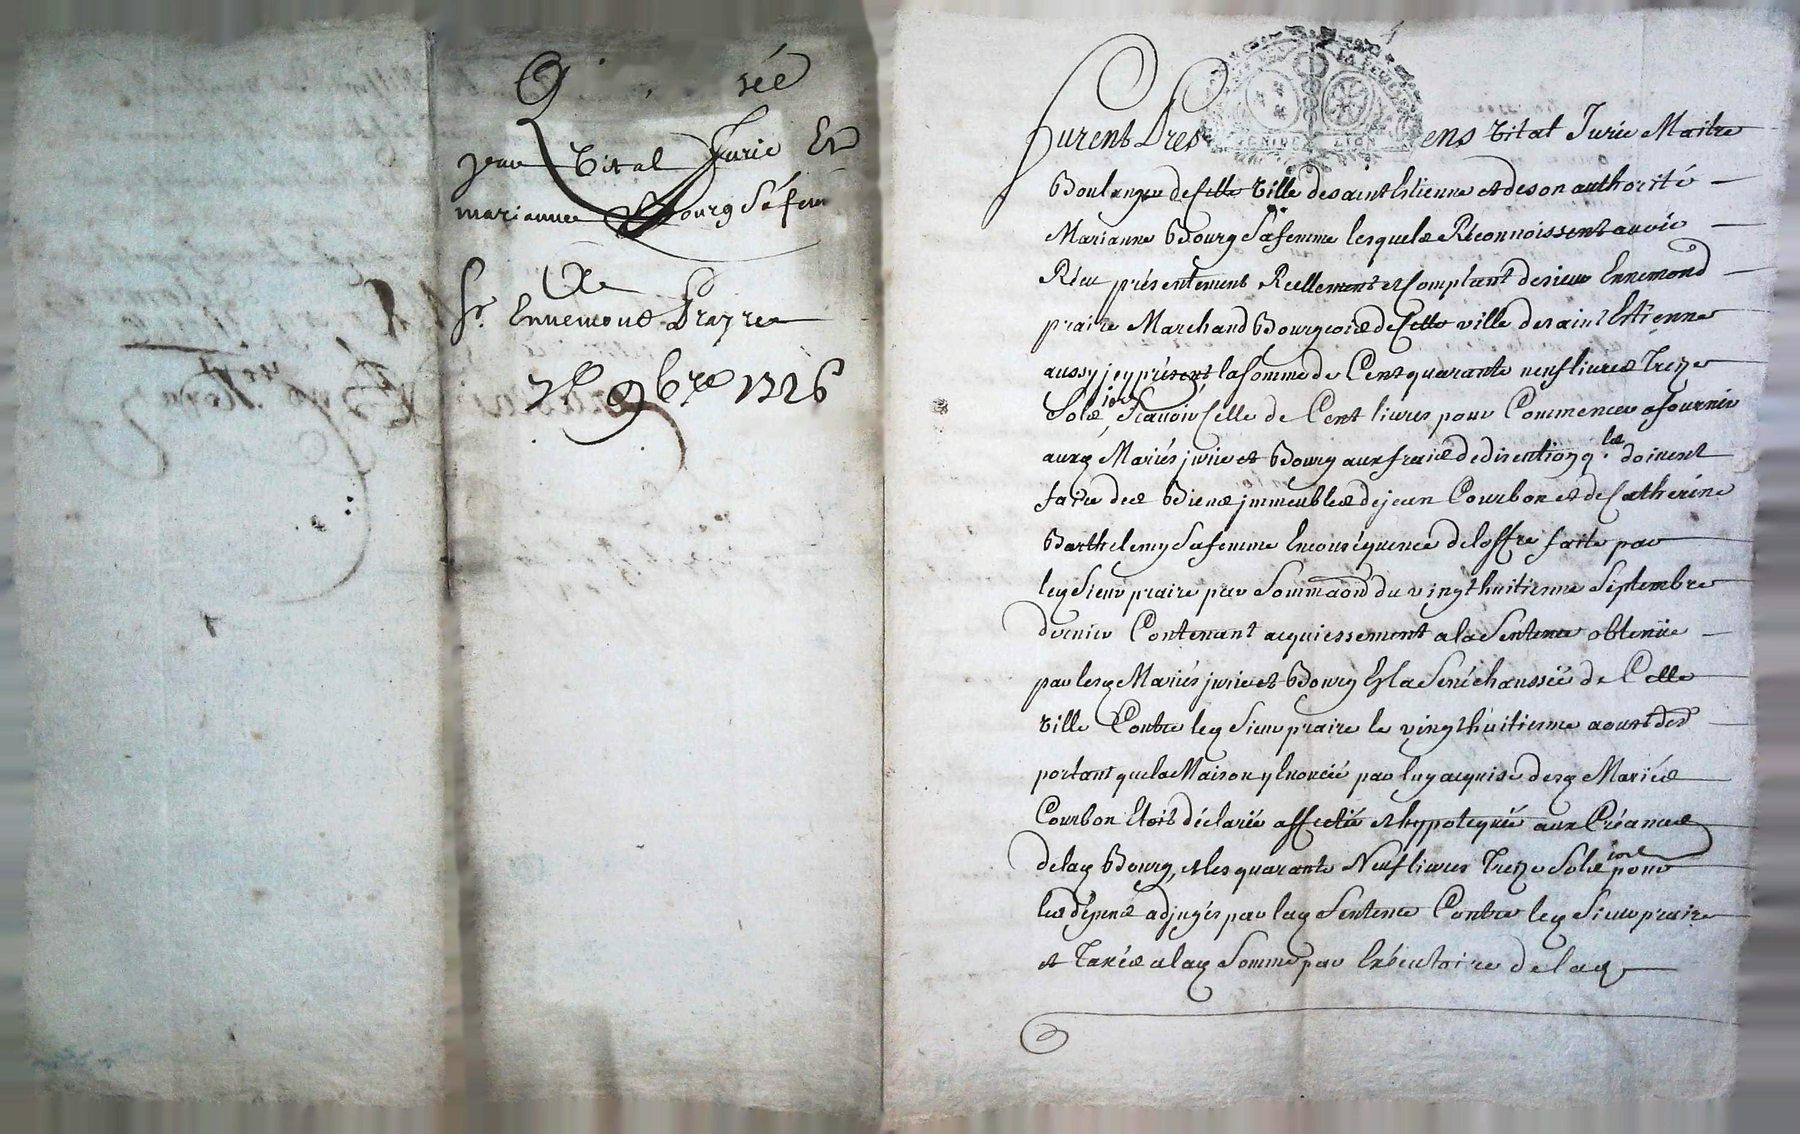 Jean Vital Jurie Et
marianne Bourg sa fem̃
A
Sr. Ennemont Prayre
7e 9bre 1726
furent Pres ens Vital Jurie Maitre
Boulanger de Cette Ville de saint Estienne et de son authorité
Marianne Bourg sa femme lesquels Réconnoissent avoir
Réçu présentement Réellement et Comptant de sieur Ennemond
praire Marchand Bourgeois de Cette ville de saint Estienne
aussy jcy présent la somme de Cent quarante neuf livres Treize
sols, Scavoir Celle de Cent livres pour Commencer a fournir
auxq Mariés jurie et Bourg aux frais de discution q. les doivent
faire des Biens jmmeubles de jean Courbon et de Catherine
Barthelemy sa femme En conséquence de loffre faite par
leq sieur praire par Sommaõn du vingt huitienne Septembre
dernier Contenant acquiessement a la Sentence obtenüe
par lesq Mariés jurie et Bourg En la Sénéchaussée de Cette
ville Contre leq sieur praire le vingt huitienne aoust der
portant que la Maison y Enoncée par luy acquise desq Mariés
Courbon Etoit déclarée affectée et hypotequée aux Créances
de laq Bourg, et les quarante Neuf livres Treize Sols pour
les dépens adjugés par laq Sentence Contre leq Sieur praire
et Taxés a laq Somme par Exécutoire de laq